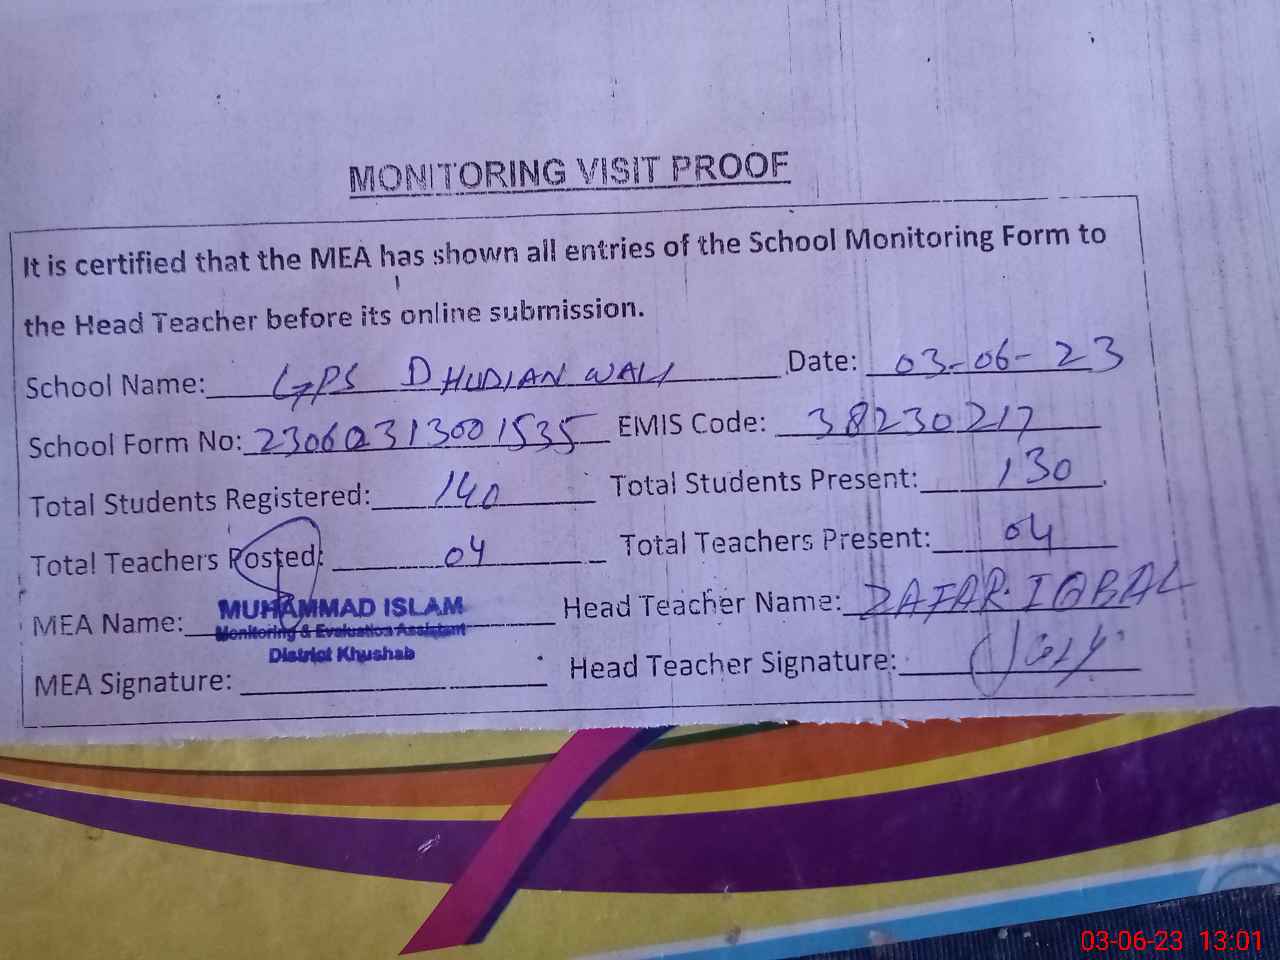 MONITORING VISIT PROOF
It is certified that the MEA has shown all entries of the School Monitoring Form to
the Head Teacher before its online submission.
School Name: GPS DHUDIAN WALI Date: 03-06-23
School Form No: 23060313001535 EMIS Code: 38230217
Total Students Registered: 140 Total Students Present: 130
Total Teachers Posted: 04 Total Teachers Present: 04
MEA Name: MUHAMMAD ISLAM Head Teacher Name: ZAFAR IQBAL
Monitoring & Evaluation Assistant
District Khushab
MEA Signature: Head Teacher Signature:
03-06-23 13:01